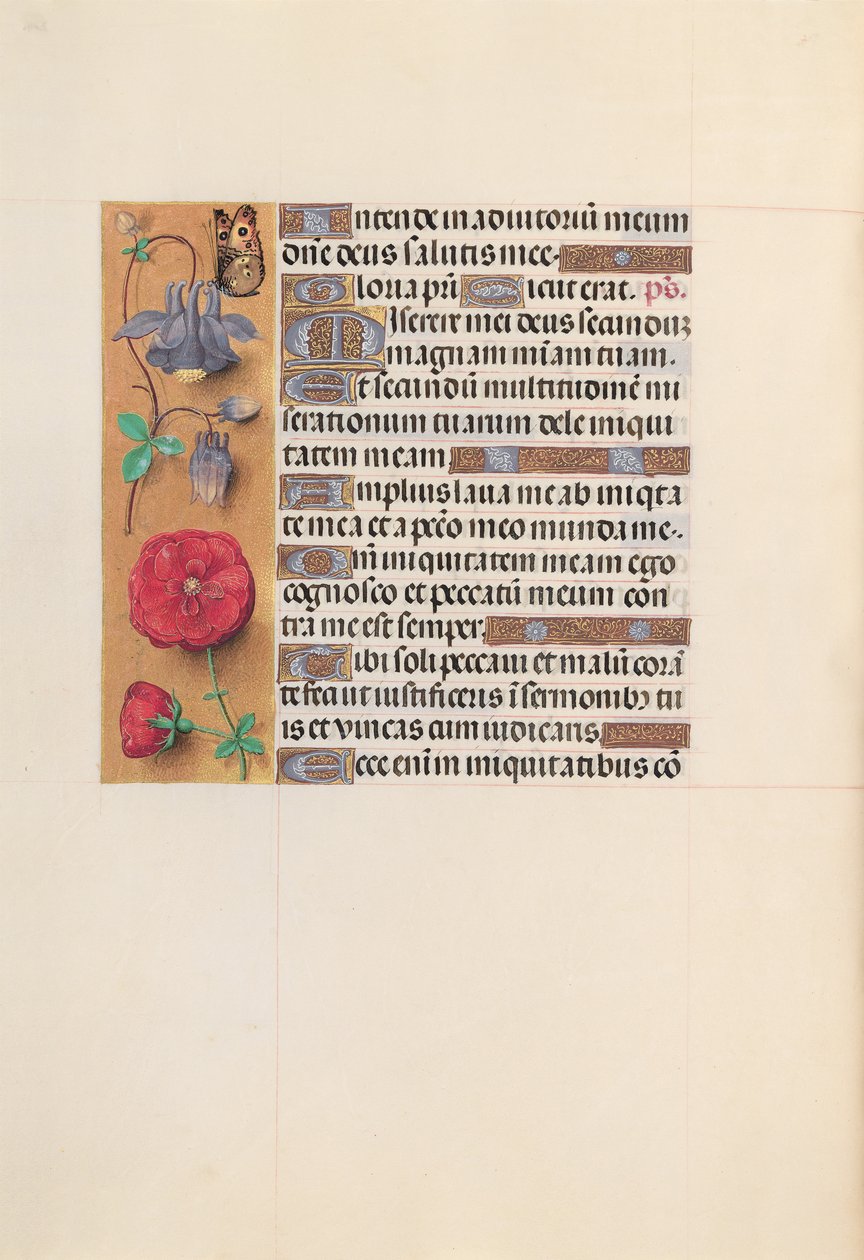 Intende in adiutoriū meum
dn̄e deus salutis mee.
Gloria pr̄i Sicut erat. p̄s.
Miserere mei deus secunduꝫ
magnam mīam tuam.
Et secundū multitudinē mi
serationum tuarum dele iniqui
tatem meam
Amplius laua me ab iniqta
te mea et a pcc̄o meo munda me.
Qm̄ iniquitatem meam ego
cognosco et peccatū meum con
tra me est semper
Tibi soli peccaui et malū corā
te feci ut iustificeris ī sermonibꝫ tu
is et vincas cum iudicaris
Ecce enī in iniquitatibus cō